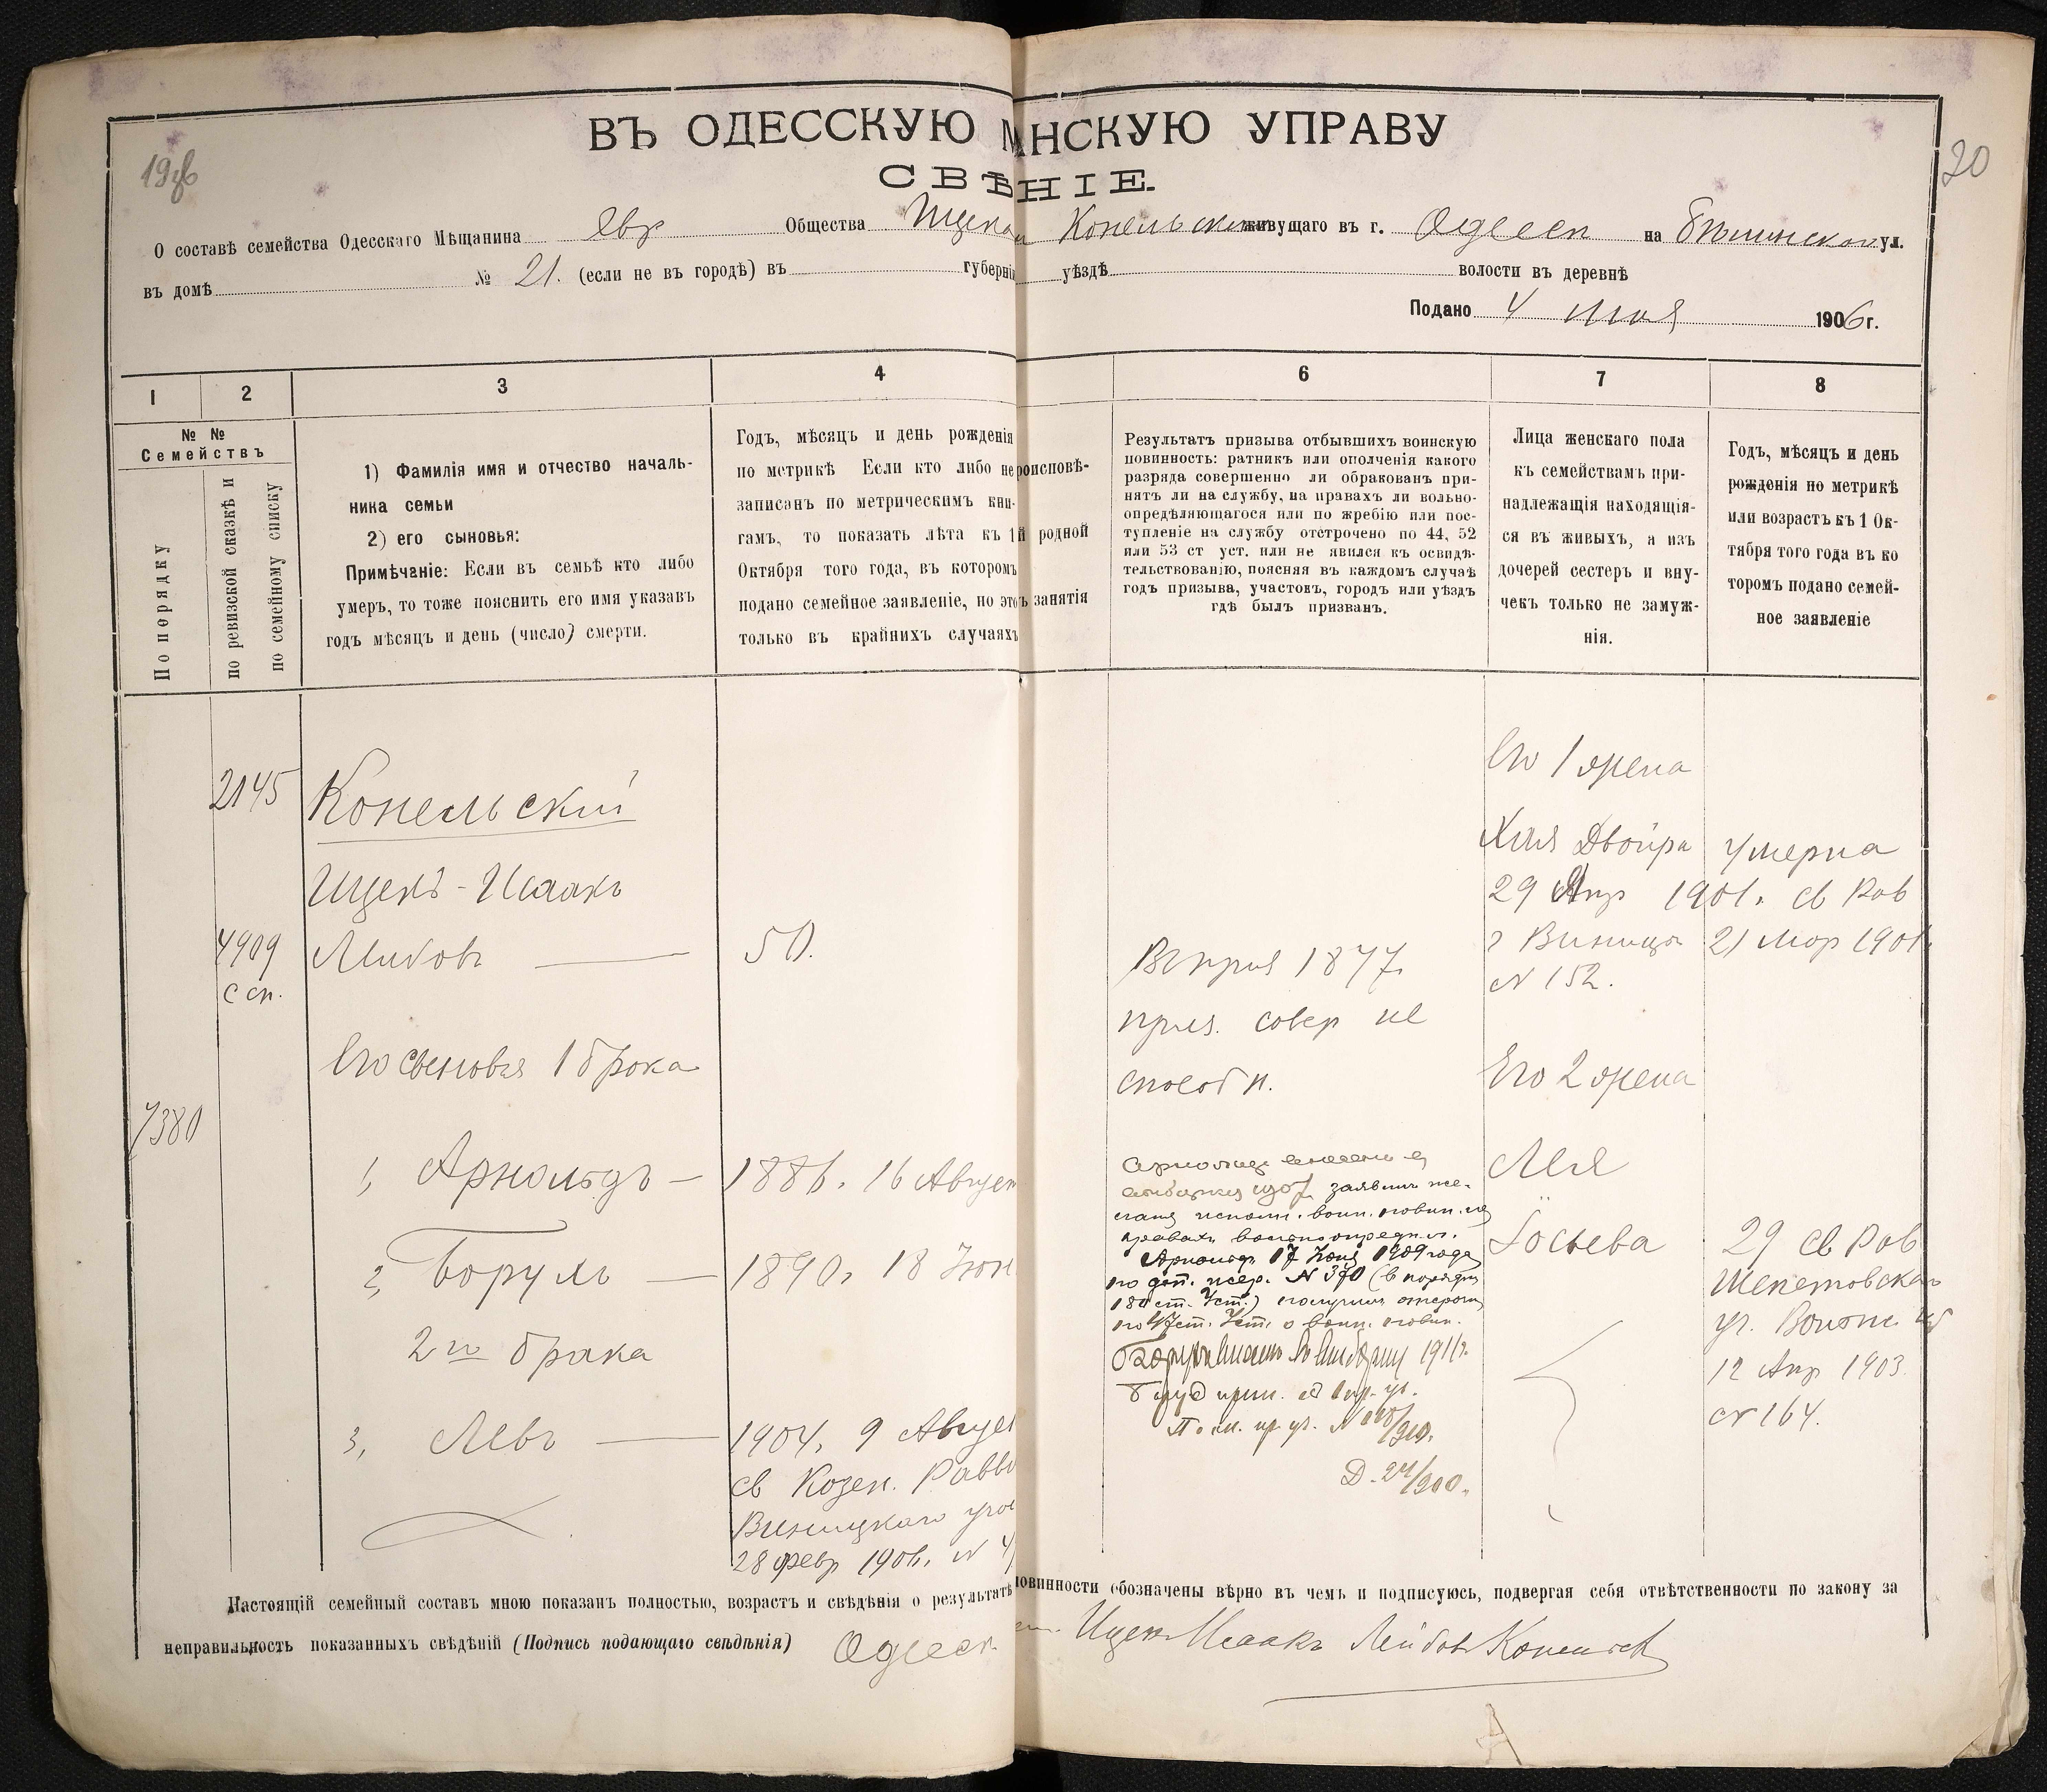 19об
20
ВЪ ОДЕССКУЮ НСКУЮ УПРАВУ
СВѢНІЕ.
О составѣ семейства Одесскаго Мѣщанина Евр Общества Ицека Конельскаго живущаго въ г. Одессѣ на ул.
въ домѣ № 21. (если не въ городѣ) въ губерніи уѣздѣ волости въ деревнѣ
Подано 4 Мая 1906 г.
1 2 3 4 6 7 8
№ № Семействъ
По порядку
по ревизской сказкѣ и
по семейному списку
1) Фамилія имя и отчество началь-
ника семьи
2) его сыновья:
Примѣчаніе: Если въ семьѣ кто либо
умеръ, то тоже пояснить его имя указавъ
годъ мѣсяцъ и день (число) смерти.
Годъ, мѣсяцъ и день рожденія
по метрикѣ Если кто либо не
записанъ по метрическимъ кни-
гамъ, то показать лѣта къ 1
Октября того года, въ которомъ
подано семейное заявленіе, но это
только въ крайнихъ случаяхъ
роисповѣ-
й родной
ъ занятія
Результатъ призыва отбывшихъ воинскую
повинность: ратникъ или ополченія какого
разряда совершенно ли обракованъ при-
нятъ ли на службу, на правахъ ли вольно-
опредѣляющагося или по жребію или пос-
тупленіе на службу отстрочено по 44, 52
или 53 ст уст. или не явился къ освидѣ-
тельствованію, поясняя въ каждомъ случаѣ
годъ призыва, участовъ, городъ или уѣздъ
гдѣ былъ призванъ.
Лица женскаго пола
къ семействамъ при-
надлежащія находящія-
ся въ живыхъ, а изъ
дочерей сестеръ и вну-
чекъ только не замуж-
нія.
Годъ, мѣсяцъ и день
рожденія по метрикѣ
или возрастъ къ 1 Ок-
тября того года въ ко
торомъ подано семей-
ное заявленіе
2145 Конельский
Ицекъ-Исаакъ
4909 Лейбовъ 50.
с сп.
Его сыновья 1 брака
7380
1, Арнольдъ 1886. 16 Август
2, Борухъ 1890. 18 Июн
2го брака
3, Левъ 1904. 9 Август
св Козен. Равви
Виницкаго
28 февр 1906. №
1877
призн. совер не
способн.
заявилъ же-
воин. повин. на
правахъ вольноопредѣл.
Арнольдъ 17 Июня 1909 года
№ 370 (въ порядкѣ
180 ст. Уст.) получилъ отсрочку
Уст. о воин. повин.
1911г.
Его 1 жена
Хая Двойра умерла
29 Апр 1901. св Рав
г Виницы 21 Мар 1901
№ 152.
Его 2 жена
Лея
Іосьева 29 св Рав
Шепетовская
12 Апр 1903.
№ 164.
Настоящій семейный составъ мною показанъ полностью, возрастъ и свѣдѣнія о результатѣ повинности обозначены вѣрно въ чемъ и подписуюсь, подвергая себя отвѣтственности по закону за
неправильность показанныхъ свѣдѣній (Подпись подающаго свѣдѣнія) Одесск Ицек Исаакъ Лейбовъ Конельский